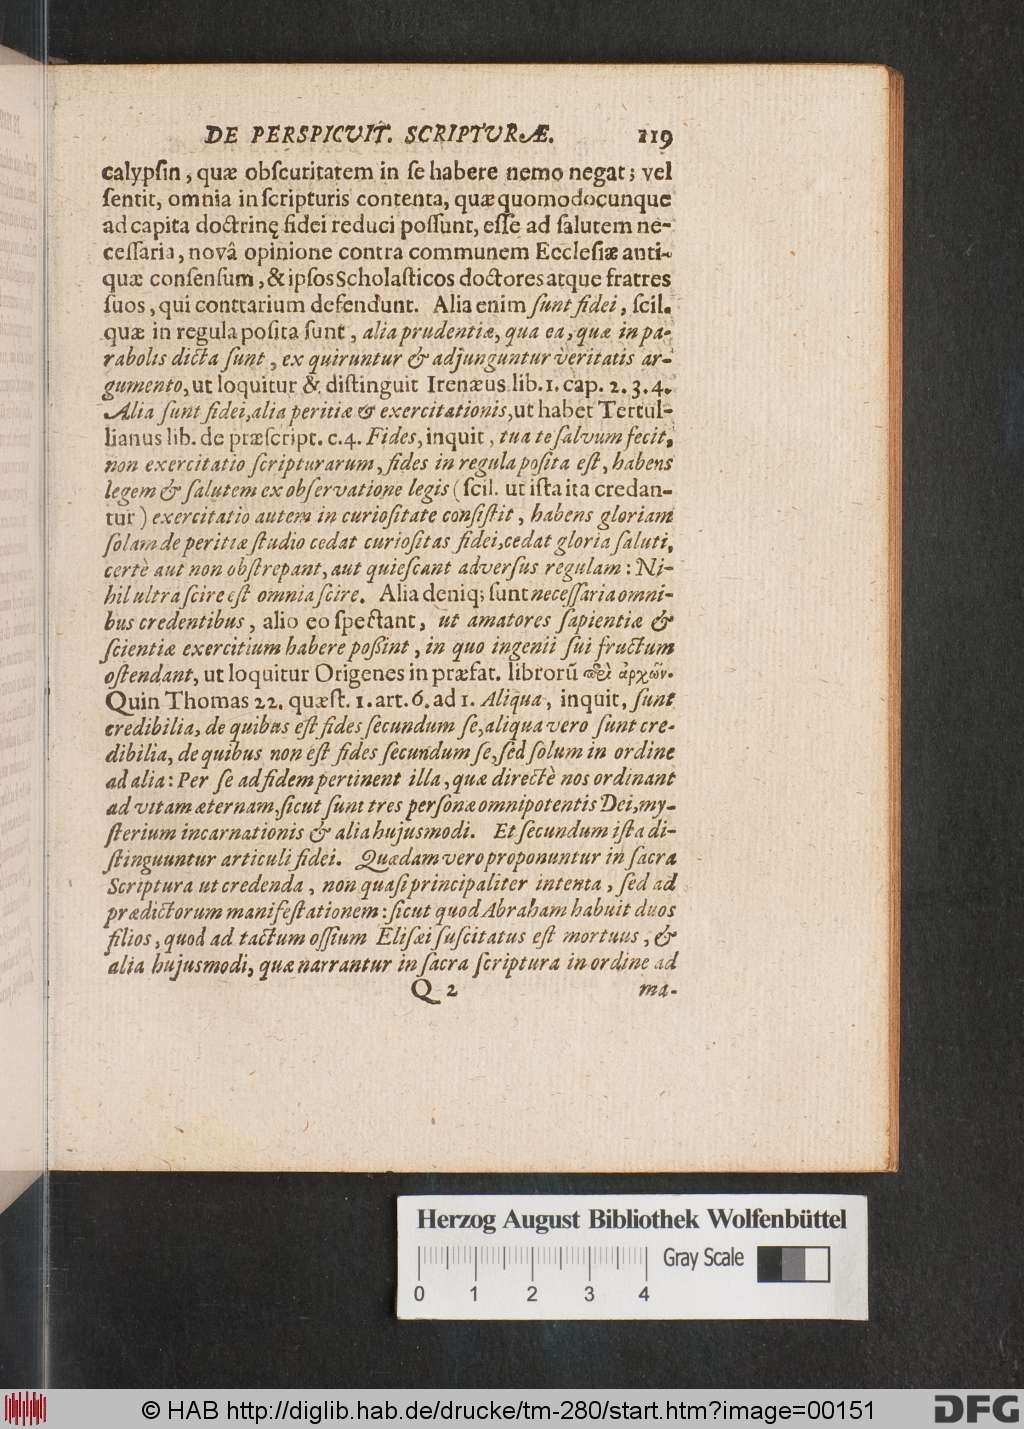 DE PERSPICVIT. SCRIPTVRÆ. 219
calypſin, quæ obſcuritatem in ſe habere nemo negat; vel
ſentit, omnia in ſcripturis contenta, quæ quomodocunque
ad capita doctrinę fidei reduci poſſunt, eſſe ad ſalutem ne-
ceſſaria, novâ opinione contra communem Eccleſiæ anti-
quæ conſenſum, & ipſos Scholaſticos doctores atque fratres
ſuos, qui conttarium defendunt. Alia enim ſunt fidei, ſcil.
quæ in regula poſita ſunt, alia prudentiæ, qua ea, quæ in pa-
rabolis dicta ſunt, ex quiruntur & adjunguntur veritatis ar-
gumento, ut loquitur & diſtinguit Irenæus lib. 1. cap. 2. 3. 4.
Alia ſunt fidei, alia peritiæ & exercitationis, ut habet Tertul-
lianus lib. de præſcript. c. 4. Fides, inquit, tua te ſalvum fecit,
non exercitatio ſcripturarum, fides in regula poſita eſt, habens
legem & ſalutem ex obſervatione legis (ſcil. ut iſta ita credan-
tur) exercitatio autem in curioſitate conſiſtit, habens gloriam
ſolam de peritiæ ſtudio cedat curioſitas fidei, cedat gloria ſaluti,
certè aut non obſtrepant, aut quieſcant adverſus regulam: Ni-
hil ultra ſcire eſt omnia ſcire. Alia deniq; ſunt neceſſaria omni-
bus credentibus, alio eo ſpectant, ut amatores ſapientiæ &
ſcientiæ exercitium habere poßint, in quo ingenii ſui fructum
oſtendant, ut loquitur Origenes in præfat. librorũ πεὶ ἀρχῶν.
Quin Thomas 22. quæſt. 1. art. 6. ad 1. Aliqua, inquit, ſunt
credibilia, de quibus eſt fides ſecundum ſe, aliqua vero ſunt cre-
dibilia, de quibus non eſt fides ſecundum ſe, ſed ſolum in ordine
ad alia: Per ſe ad fidem pertinent illa, quæ directè nos ordinant
ad vitam æternam, ſicut ſunt tres perſonæ omnipotentis Dei, my-
ſterium incarnationis & alia hujusmodi. Et ſecundum iſta di-
ſtinguuntur articuli fidei. Quædam vero proponuntur in ſacra
Scriptura ut credenda, non quaſi principaliter intenta, ſed ad
prædictorum manifeſtationem: ſicut quod Abraham habuit duos
filios, quod ad tactum oſſium Eliſæi ſuſcitatus eſt mortuus, &
alia hujusmodi, quæ narrantur in ſacra ſcriptura in ordine ad
Q 2 ma-
Herzog August Bibliothek Wolfenbüttel
Gray Scale
0 1 2 3 4
© HAB http://diglib.hab.de/drucke/tm-280/start.htm?image=00151
DFG